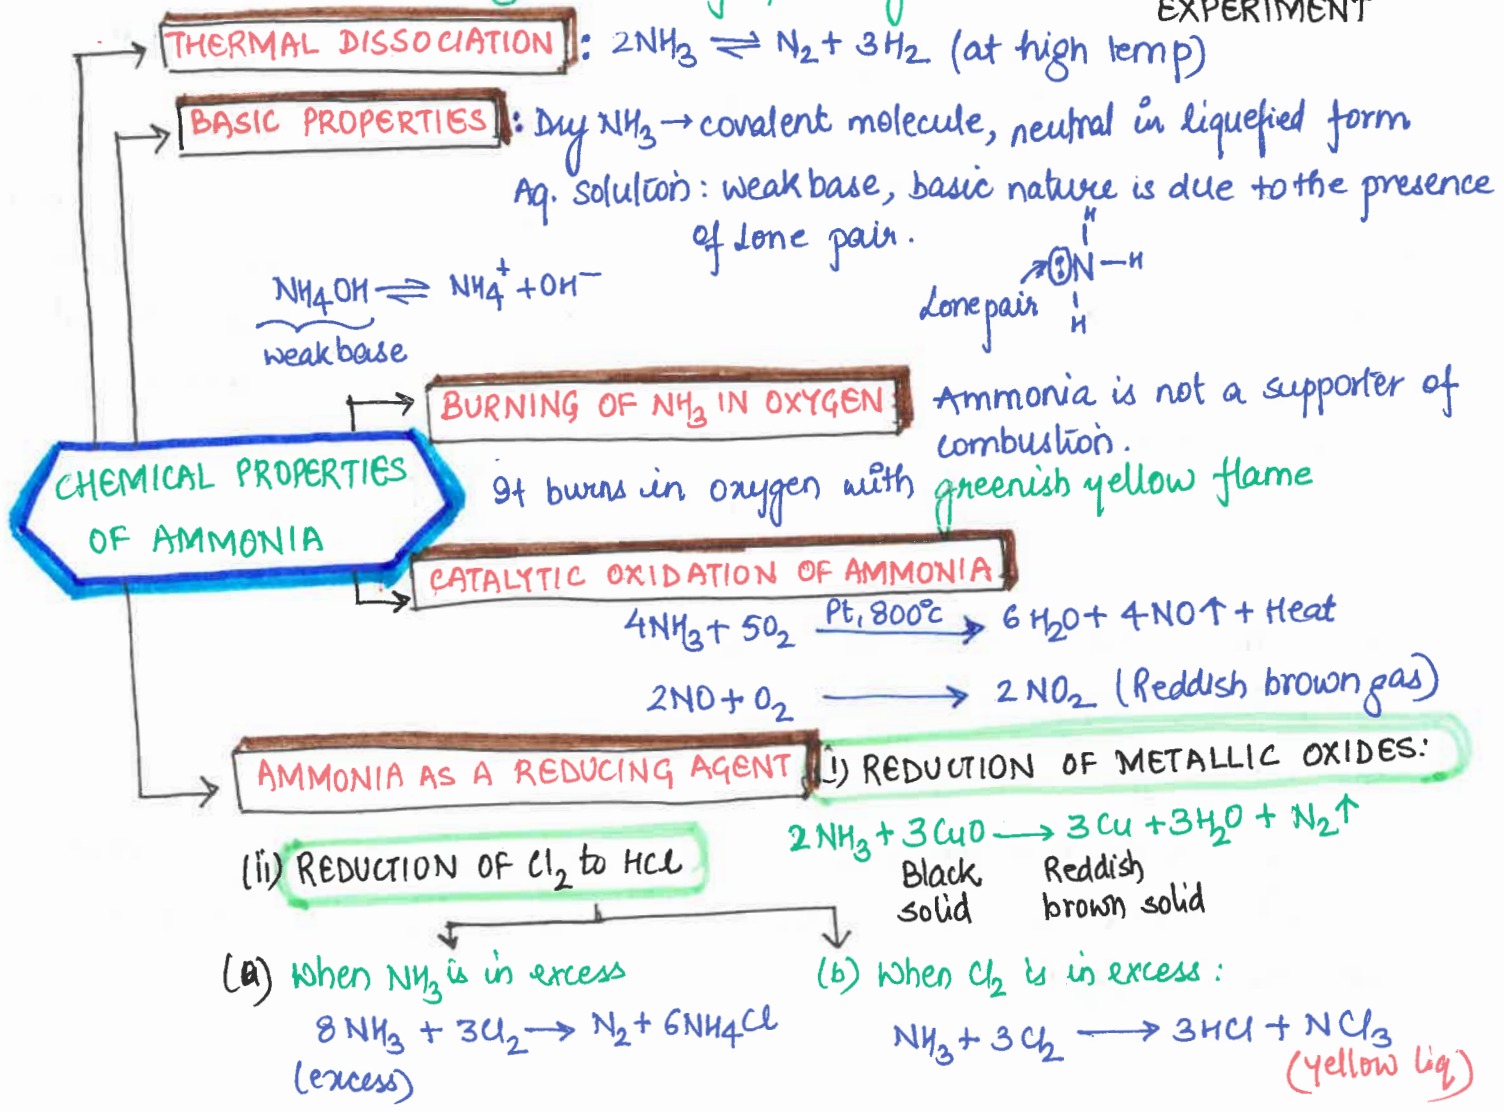 EXPERIMENT
THERMAL DISSOCIATION : 2NH₃ ⇌ N₂ + 3H₂ (at high temp)
BASIC PROPERTIES : Dry NH₃ → covalent molecule, neutral in liquefied form
Aq. solution : weak base, basic nature is due to the presence
of lone pair.
NH₄OH ⇌ NH₄⁺ + OH⁻
weak base
H
:N—H
Lone pair
H
BURNING OF NH₃ IN OXYGEN : Ammonia is not a supporter of
combustion.
It burns in oxygen with greenish yellow flame
CHEMICAL PROPERTIES
OF AMMONIA
CATALYTIC OXIDATION OF AMMONIA
4NH₃ + 5O₂ —Pt, 800°C→ 6H₂O + 4NO↑ + Heat
2NO + O₂ → 2NO₂ (Reddish brown gas)
AMMONIA AS A REDUCING AGENT i) REDUCTION OF METALLIC OXIDES:
2NH₃ + 3CuO → 3Cu + 3H₂O + N₂↑
Black solid
Reddish brown solid
(ii) REDUCTION OF Cl₂ to HCl
(a) When NH₃ is in excess
8NH₃ + 3Cl₂ → N₂ + 6NH₄Cl
(excess)
(b) When Cl₂ is in excess :
NH₃ + 3Cl₂ → 3HCl + NCl₃
(yellow liq)